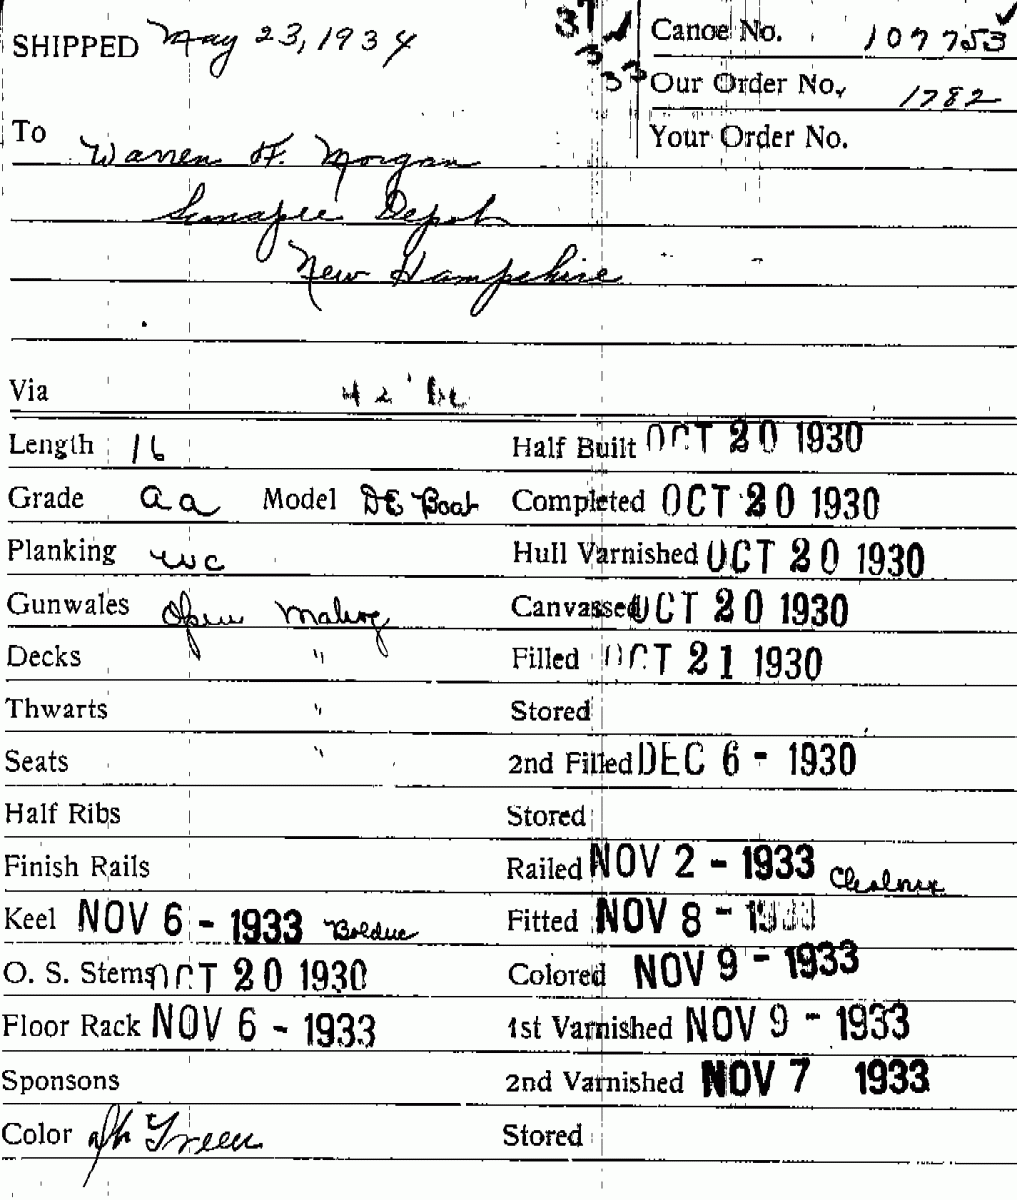 SHIPPED May 23, 1934
37 ✓
3
33
Canoe No. 107753 ✓
Our Order No. 1782
Your Order No.
To Warren H. Morgan
Sunapee Depot
New Hampshire
Via
Length 16
Half Built OCT 20 1930
Grade aa Model DE Boat
Completed OCT 20 1930
Planking wc
Hull Varnished OCT 20 1930
Gunwales Open Mahog
Canvassed OCT 20 1930
Decks "
Filled OCT 21 1930
Thwarts "
Stored
Seats "
2nd Filled DEC 6 - 1930
Half Ribs
Stored
Finish Rails
Railed NOV 2 - 1933
Keel NOV 6 - 1933 Bolduc
Fitted NOV 8 - 1933
O. S. Stems OCT 20 1930
Colored NOV 9 - 1933
Floor Rack NOV 6 - 1933
1st Varnished NOV 9 - 1933
Sponsons
2nd Varnished NOV 7 1933
Color Green
Stored